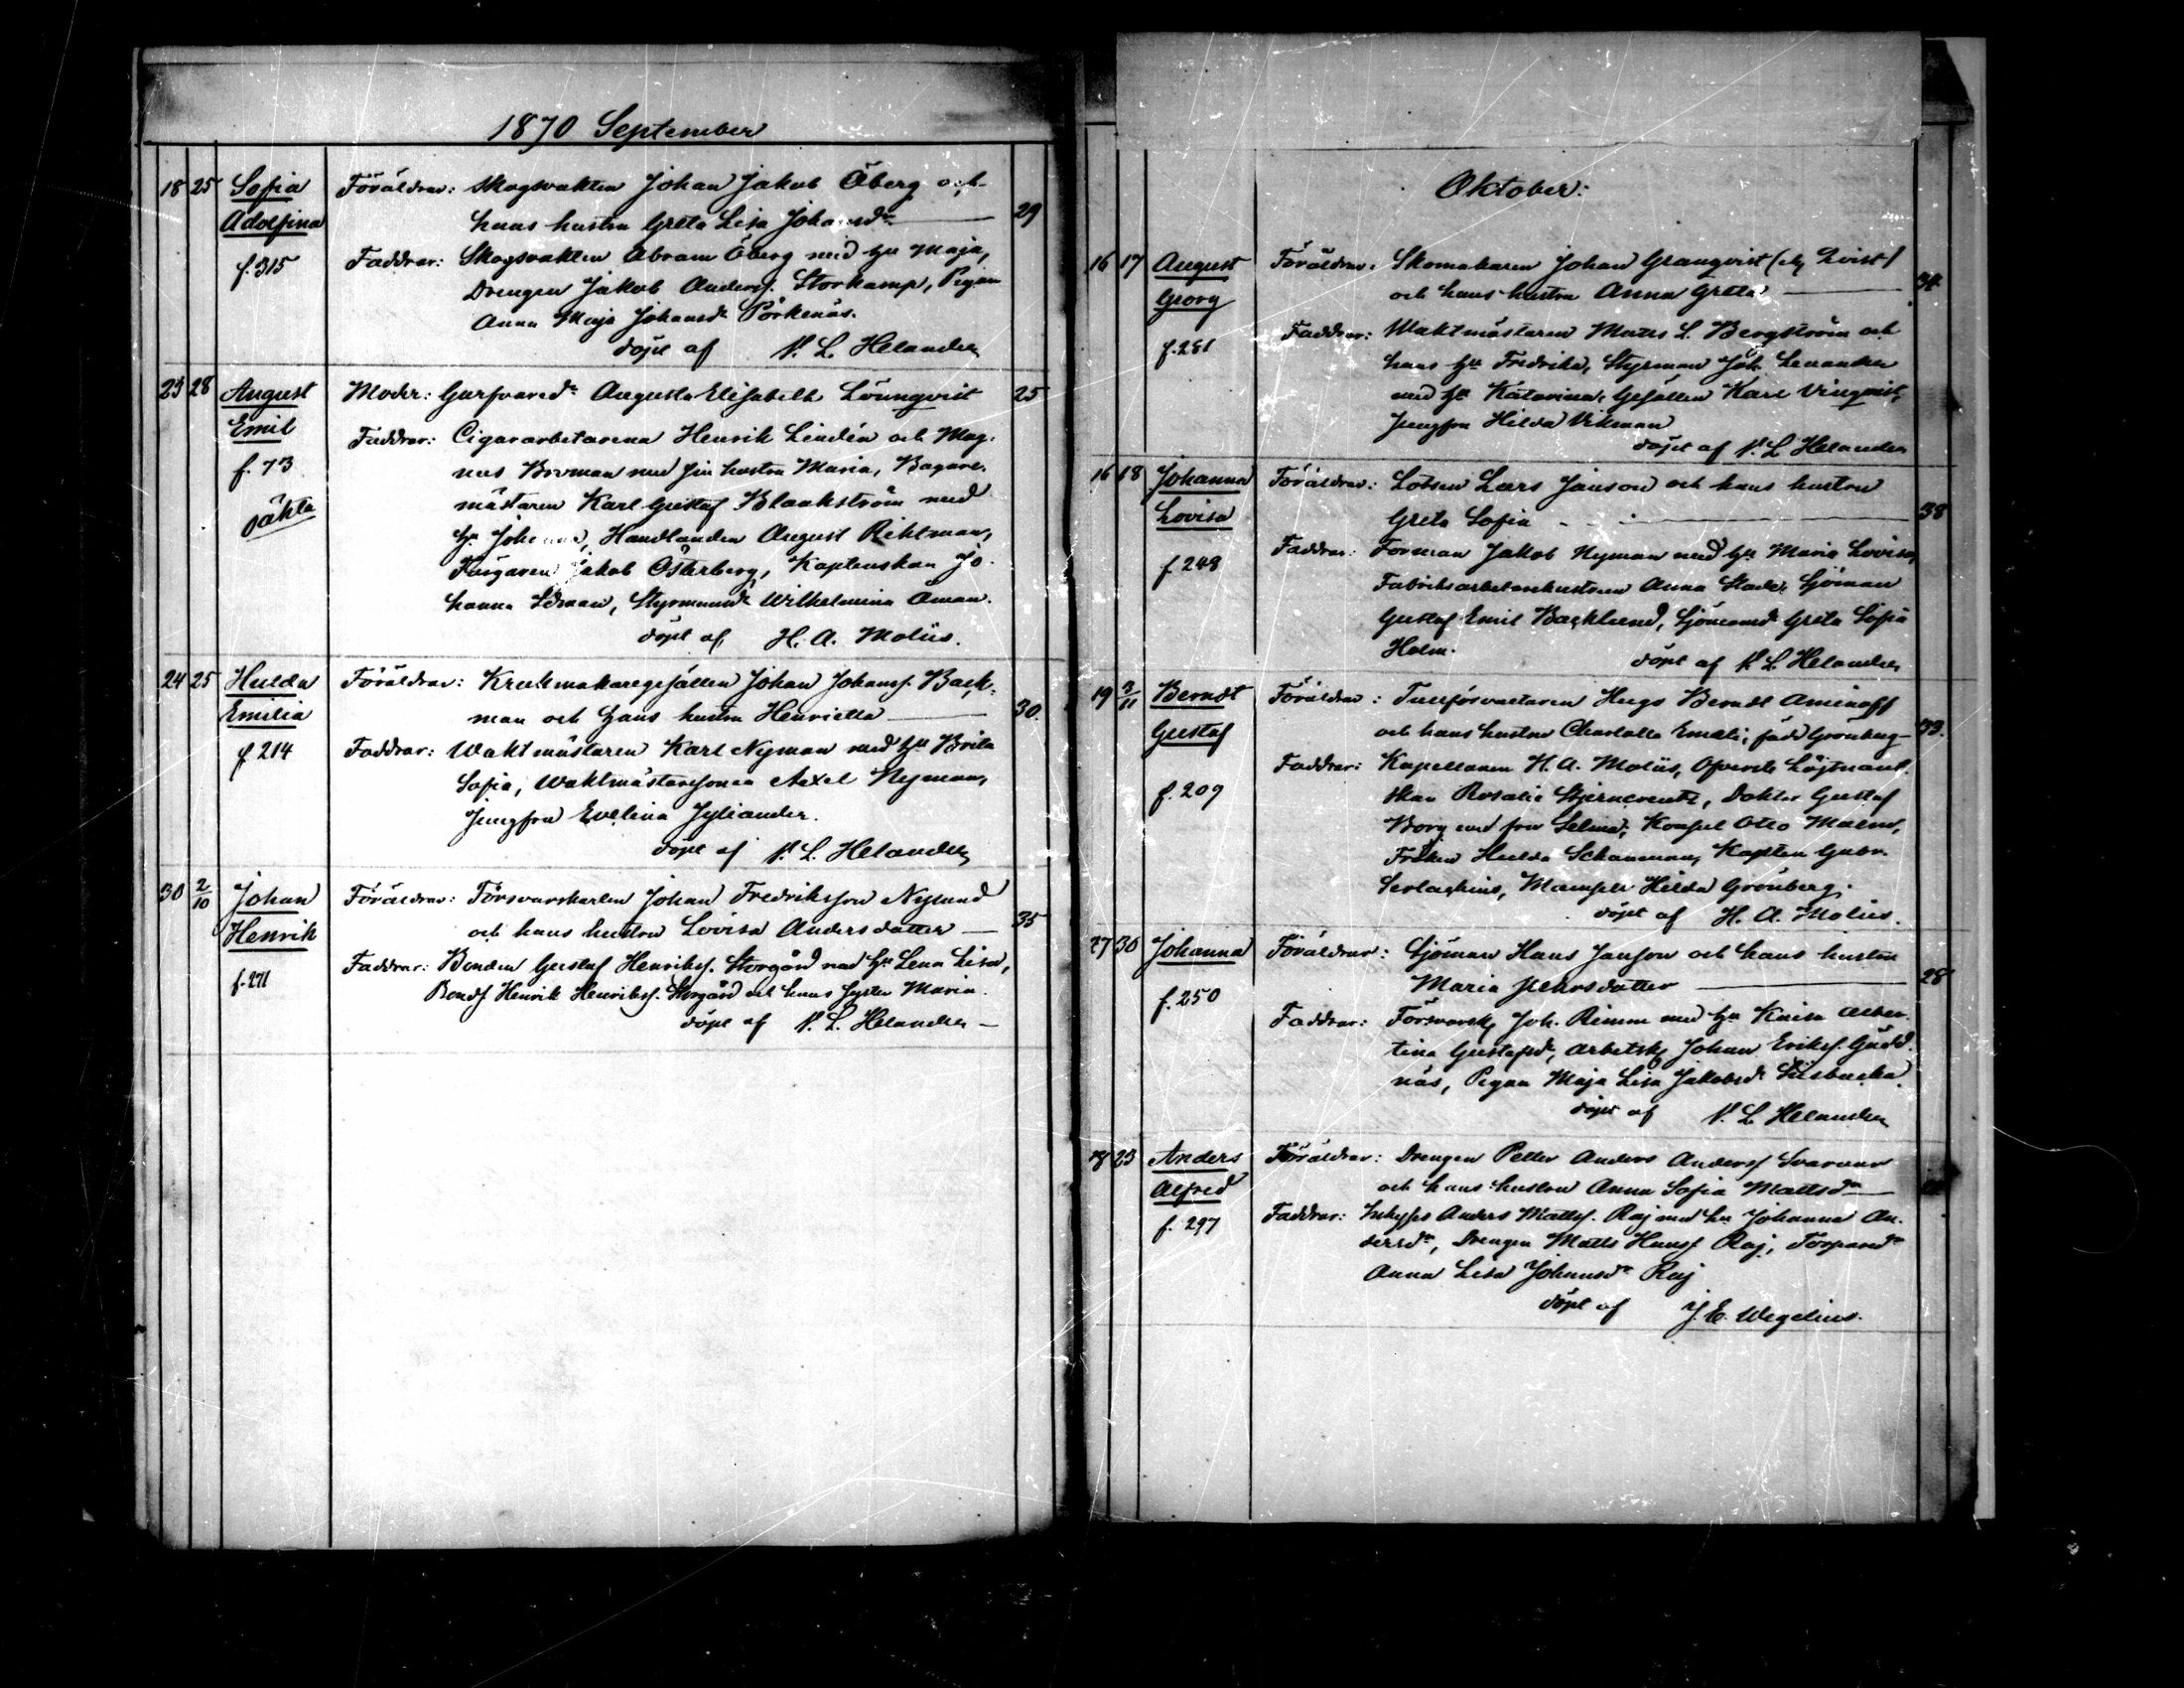 1870 September
18 25 Sofia Föräldrar: Skogsvakten Johan Jakob Öberg och
Adolfina hans hustru Greta Lisa Johansdr 29
f. 315 Faddrar: Skogsvakten Abram Öberg med hu Maja,
Drengen Jakob Anderss. Storkamp, Pigan
Anna Maja Johansdr Pörkenäs.
döpt af N. L. Helander
23 28 August Moder: Garfvaredr Augusta Elisabeth Lönnqvist 25
Emil Faddrar: Cigararbetarena Henrik Lindén och Mag-
f. 73 nus Broman med sin hustru Maria, Bagare-
oäkta mästaren Karl Gustaf Blankström med
hu Johanna, Handlanden August Rihtman,
Färgaren Jakob Österberg, Kaptenskan Jo-
hanna Idman, Styrmansdr Wilhelmina Åman.
döpt af H. A. Moliis.
24 25 Hulda Föräldrar: Krukmakaregesällen Johan Johanss. Back-
Emilia man och hans hustru Henrietta 30.
f. 214 Faddrar: Waktmästaren Karl Nyman med hu Brita
Sofia, Waktmästaresonen Axel Nyman,
Jungfru Evelina Jyliander.
döpt af N. L. Helander
30 2/10 Johan Föräldrar: Försvarskarlen Johan Fredriksson Nylund
Henrik och hans hustru Lovisa Andersdotter 35
f. 271 Faddrar: Bonden Gustaf Henrikss. Storgård med hu Lena Lisa,
Bonds. Henrik Henrikss. Storgård och hans syster Maria.
döpt af N. L. Helander
Oktober:
16 17 August Föräldrar: Skomakaren Johan Granqvist (el. Qvist)
Georg och hans hustru Anna Greta 34
f. 281 Faddrar: Waktmästaren Matts L. Bergström och
hans hu Fredrika, Styrman Joh. Lenander
med hu Katarina, Gesällen Karl Vinqvist,
Jungfru Hilda Vikman
döpt af N. L. Helander
16 18 Johanna Föräldrar: Lotsen Lars Janson och hans hustru
Lovisa Greta Sofia 38
f. 248 Faddrar: Forman Jakob Nyman med hu Maria Lovisa,
Fabriksarbetarehustrun Anna Sjöman
Gustaf Emil Backlund, Sjömansdr Greta Sofia
Holm. döpt af N. L. Helander
19 3/11 Berndt Föräldrar: Tullförvaltaren Hugo Berndt Aminoff
Gustaf och hans hustru Charlotta Emeli, född Grönberg 33.
f. 209 Faddrar: Kapellanen H. A. Moliis, Öfverste Löjtnant-
skan Rosalie Stjerncreutz, Doktor Gustaf
Borg med fru Selma, Konsul Otto Malm,
Fröken Hulda Schauman, Kapten Gabr.
Serlachius, Mamsell Hilda Grönberg.
döpt af H. A. Moliis.
27 30 Johanna Föräldrar: Sjöman Hans Janson och hans hustru
Maria Pehrsdotter 28
f. 250 Faddrar: Försvarsk. Joh. Rimm med hu Kaisa Alber-
tina Gustafsdr, Arbetsk. Johan Erikss. Gädd-
näs, Pigan Maja Lisa Jakobsdr Silsbacka.
döpt af N. L. Helander
18 23 Anders Föräldrar: Drengen Petter Anders Anderss. Svarvar
Alfred och hans hustru Anna Sofia Mattsdr
f. 297 Faddrar: Inhyses Anders Mattss. Raj med hu Johanna An-
dersdr, Drengen Matts Hanss. Raj, Torparedr
Anna Lisa Johansdr Raj
döpt af J. E. Wegelius.